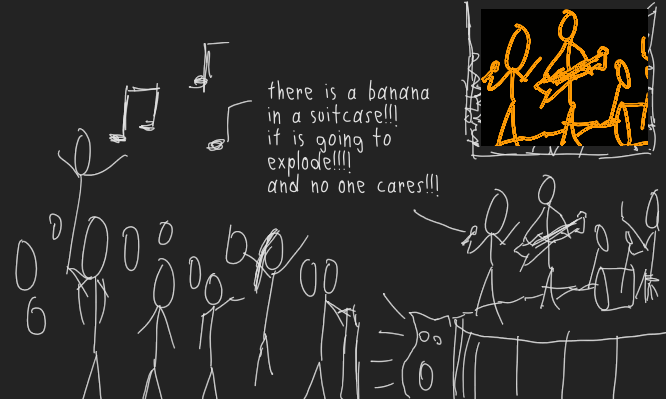 there is a banana
in a suitcase!!!
it is going to
explode!!!!
and no one cares!!!